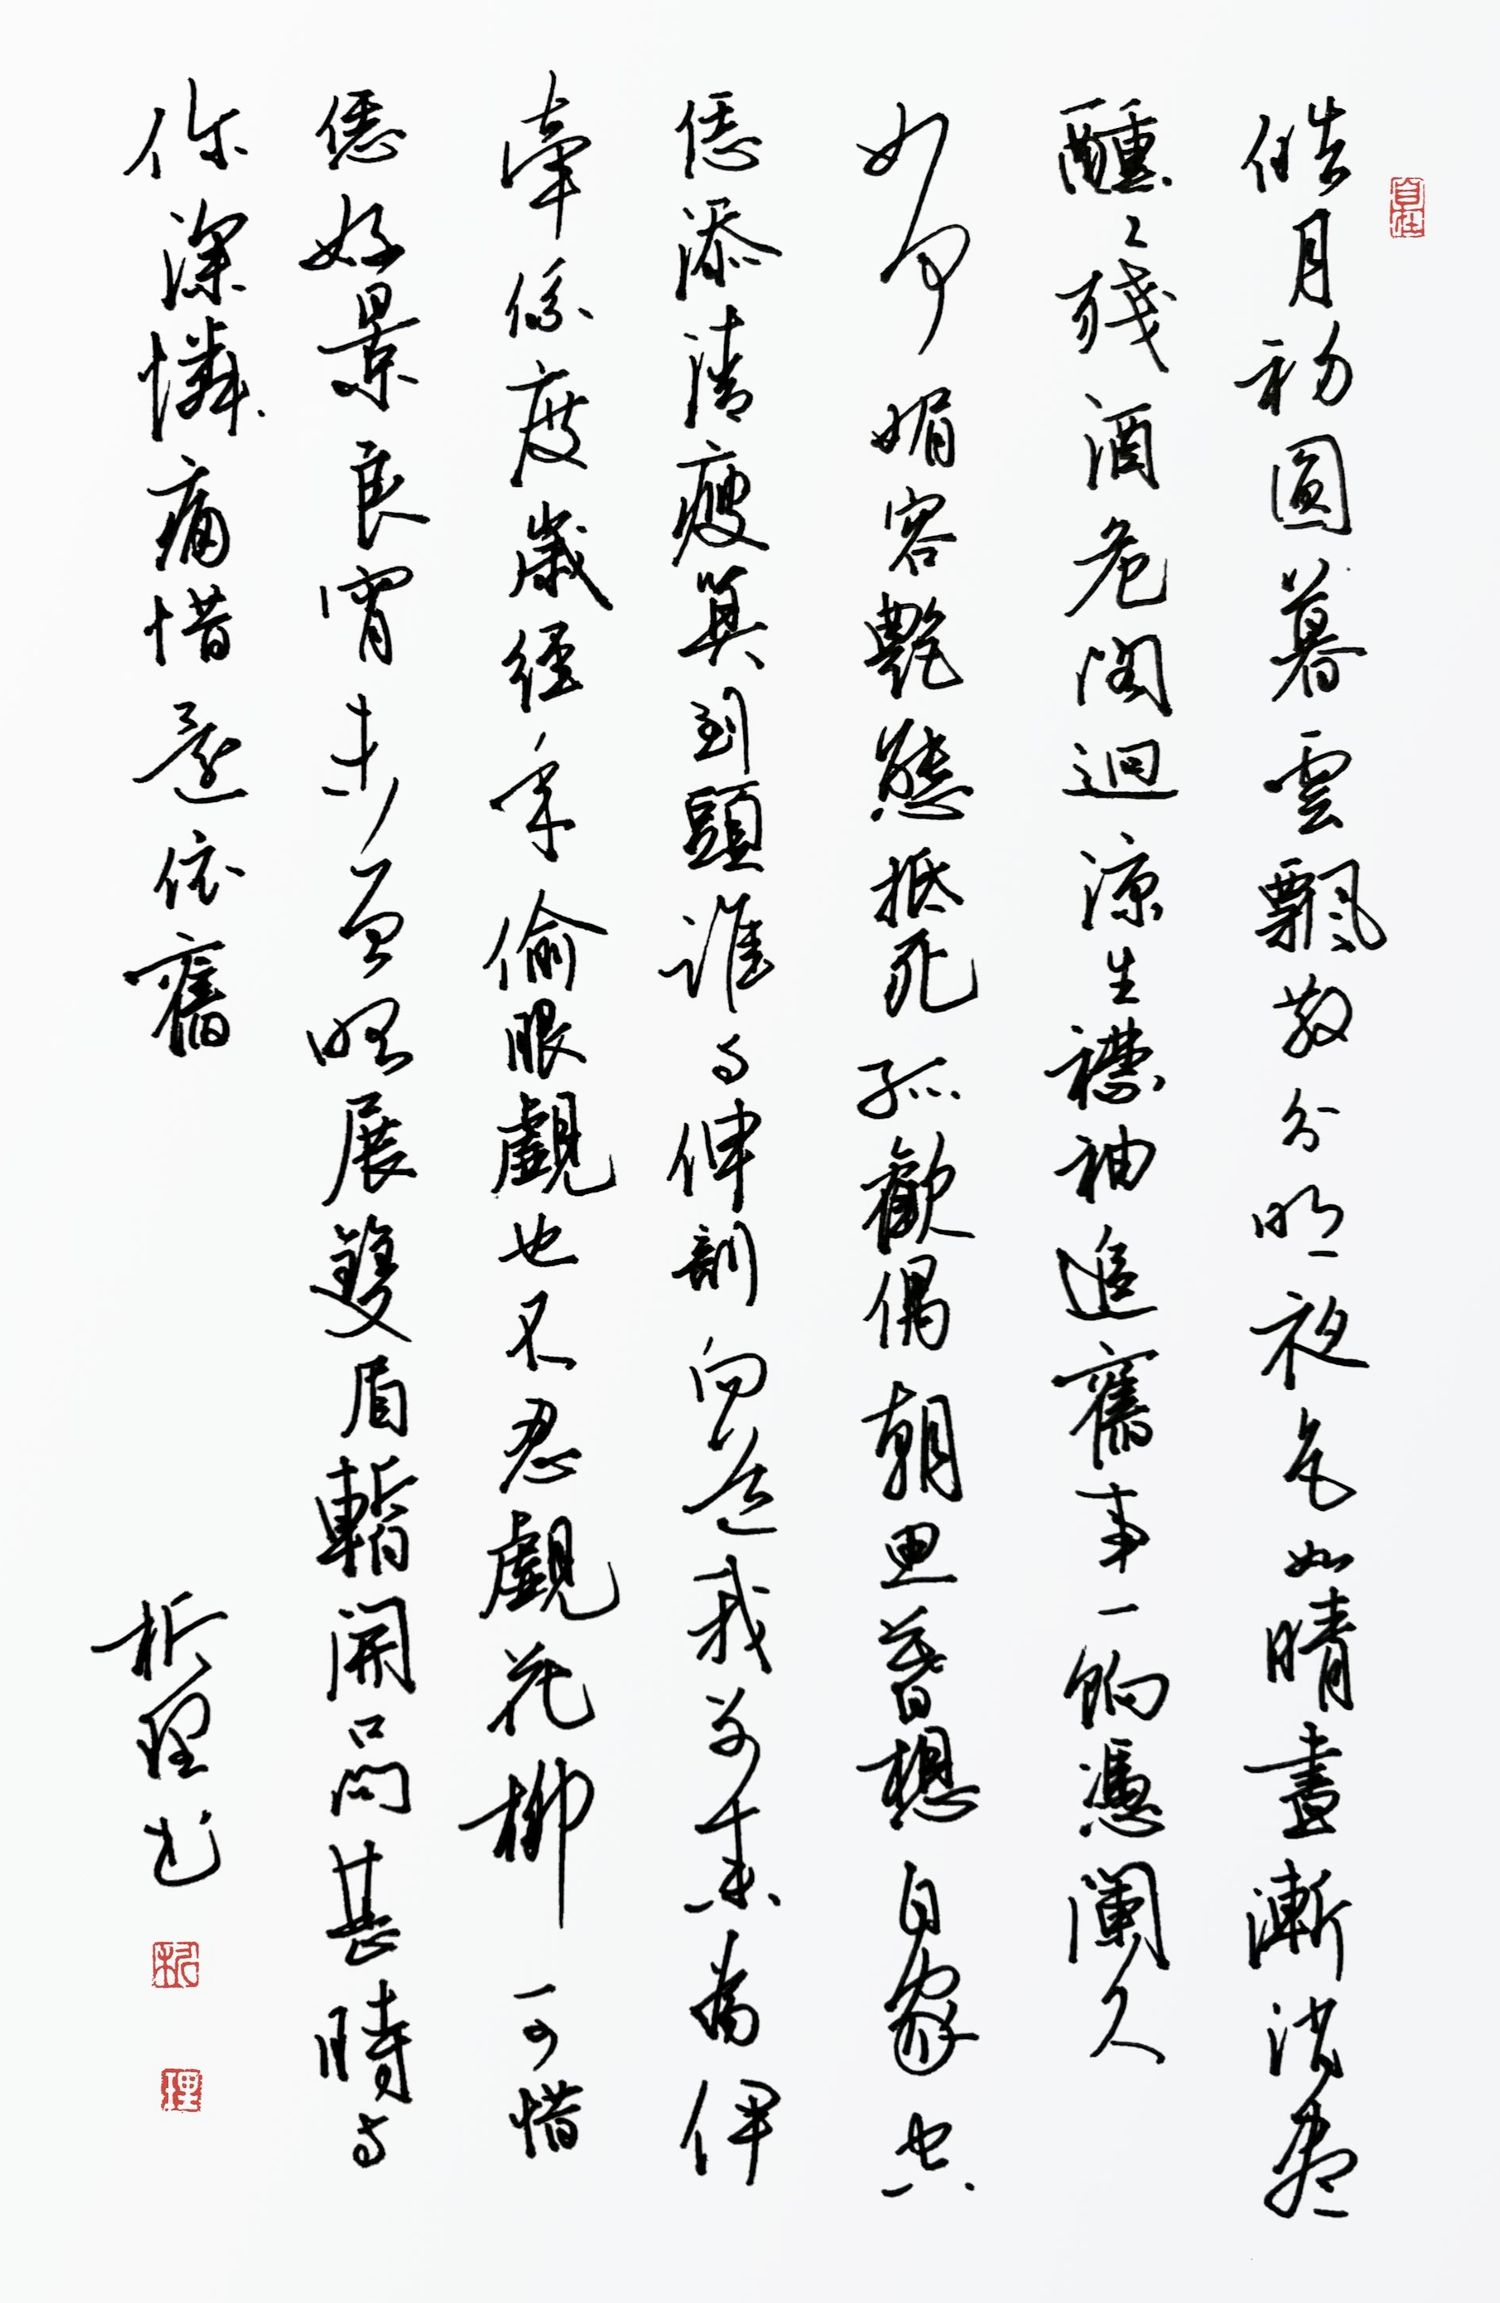 自在
皓月初圓暮雲飄散分明夜色如晴晝漸消盡
醺々殘酒危閣迥涼生襟袖追舊事一餉憑闌久
如何媚容艷態抵死孤歡偶朝思暮想自家空
恁添清瘦算到頭誰与伸剖向道我別來為伊
牽係度歲經年偷眼覷也不忍覷花柳可惜
恁好景良宵未曾略展雙眉暫開口問甚時与
你深憐痛惜還依舊
析理书
析
理